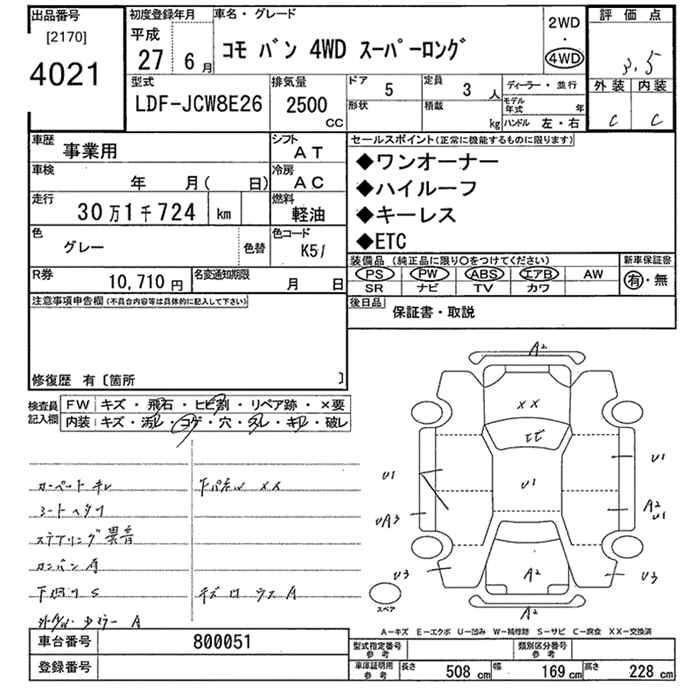 出品番号 初度登録年月 車名・グレード 評価点
[2170] 平成 2WD
4021 27年6月 コモ バン 4WD スーパーロング 4WD 3.5
型式 排気量 ドア 5 定員 3人 ディーラー・並行 外装 内装
LDF-JCW8E26 2500CC 形状 積載 kg モデル年式 年 ハンドル 左・右 C C
車歴 事業用 シフト AT セールスポイント(正常に機能するものに限ります)
◆ワンオーナー
車検 年 月( 日) 冷房 AC ◆ハイルーフ
走行 30万1千724 km 燃料 軽油 ◆キーレス
色 グレー 色替 色コード K51 ◆ETC
装備品(純正品に限り○をつけてください) 新車保証書
R券 10,710円 名変通知期限 月 日 PS PW ABS エアB AW 有・無
SR ナビ TV カワ
注意事項申告欄(不具合内容等は具体的に記入して下さい) 後日品 保証書・取説
修復歴 有〔箇所 〕
検査員 FW キズ・飛石・ヒビ割・リペア跡・×要
記入欄 内装 キズ・汚れ・コゲ・穴・スレ・キレ・破レ
A2
XX
ヒビ
U1 U1 U1
UA3 A2 U1
U3 A2 U3
スペア A2
カーペットキレ 下パネルXX
シートヘタリ
ステアリング異音
カンバン有
下回りS キズ
A
A―キズ E―エクボ U―凹み W―補修跡 S―サビ C―腐食 XX―交換済
車台番号 800051 型式指定番号 参考 類別区分番号 参考
登録番号 車庫証明用 参考 長さ 508cm 幅 169cm 高さ 228cm